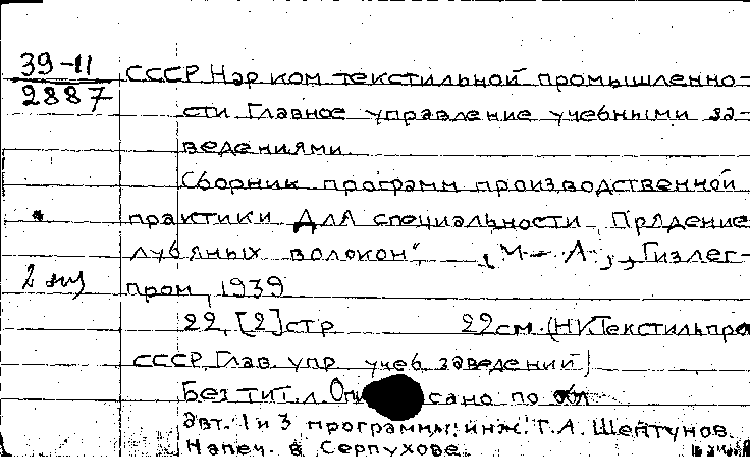 39-11
2887
СССР Нар ком текстильной промышленно-
сти. Главное управление учебными за-
ведениями.
Сборник программ производственной
практики Для специальности „Прядение
лубяных волокон“ „М.— Л.„, Гизлег-
2 экз
пром, 1939
22, [2] стр 22 см. (НК Текстильпро
СССР, Глав. упр учеб. заведений)
Без тит. л. Описано по обл
Авт. 1 и 3 программы: инж. Г. А. Шейтунов.
Напеч. в Серпухове.